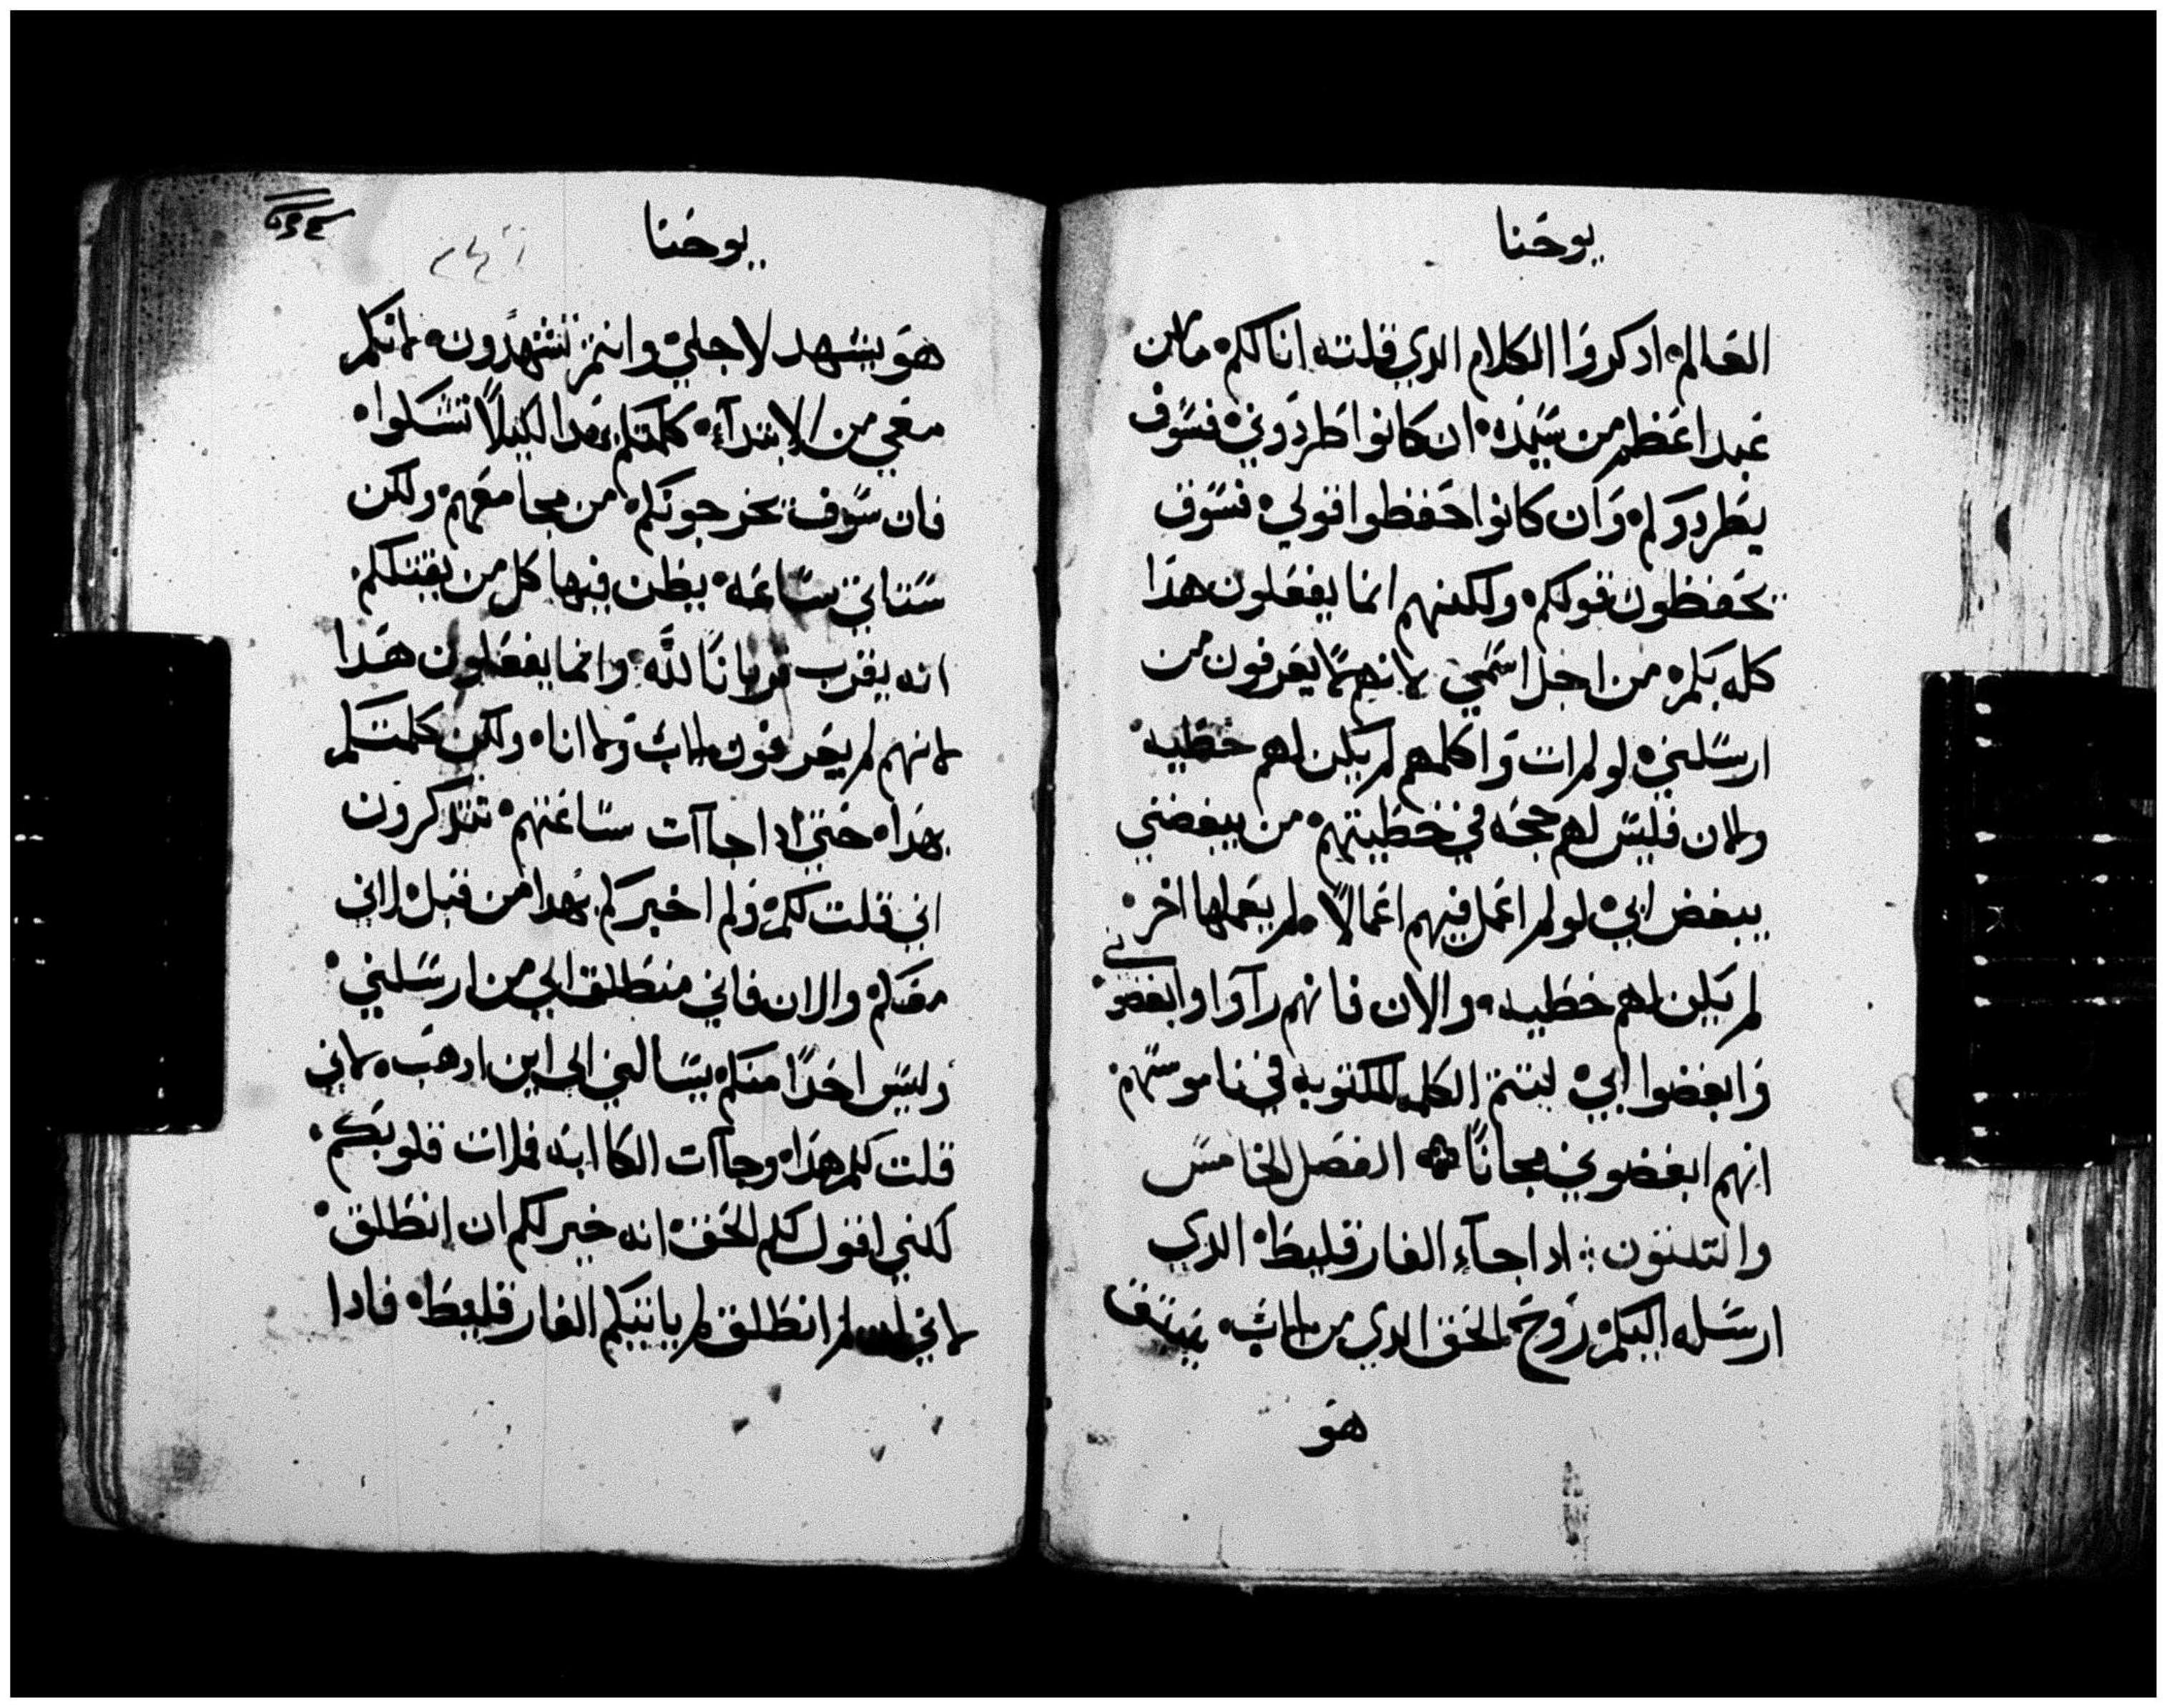 يوحنا
العالم ادكروا الكلام الدي قلته انا لكم ما من
عبد اعظم من سيده ان كانوا طردوني فسوف
يطردوكم وان كانوا حفظوا قولي فسوف
يحفظون قولكم ولكنهم انما يفعلون هذا
كله بكم من اجل اسمي لانهم ما يعرفون من
ارسلني لو لم ات واكلمهم لم يكن لهم خطيه
والان فليس لهم حجه في خطيتهم من يبغضني
يبغض ابي لو لم اعمل فيهم اعمالاً لم يعملها اخر
لم يكن لهم خطيه والان فانهم رآوا وابغضوني
وابغضوا ابي لتتم الكلمه المكتوبه في ناموسهم
انهم ابغضوني مجاناً الفصل الخامس
والتلتون اداجآء الفارقليط الدي
ارسله اليكم روح الحق الدي من الاب ينبتق
هو
يوحنا
هو يشهد لاجلي وانتم تشهدون لانكم
معي من الابتدآء كلمتكم بهدا لكيلاً تشكوا
فان سوف يخرجونكم من مجامعهم ولكن
ستاتي ساعه يظن فيها كل من يقتلكم
انه يقرب قرباناً لله وانما يفعلون هدا
لانهم لم يعرفون الاب ولا انا ولكن كلمتكم
بهدا حتي ادا جاآت ساعتهم تتدكرون
اني قلت لكم ولم اخبركم بهدا من قبل لاني
معكم والان فاني منطلق الي من ارسلني
وليس احداً منكم يسالني الي اين ادهب لاني
قلت لكم هدا وجاآت الكاابه فملات قلوبكم
لكني اقول لكم الحق انه خير لكم ان انطلق
لاني لم انطلق لم ياتيكم الفارقليط فادا